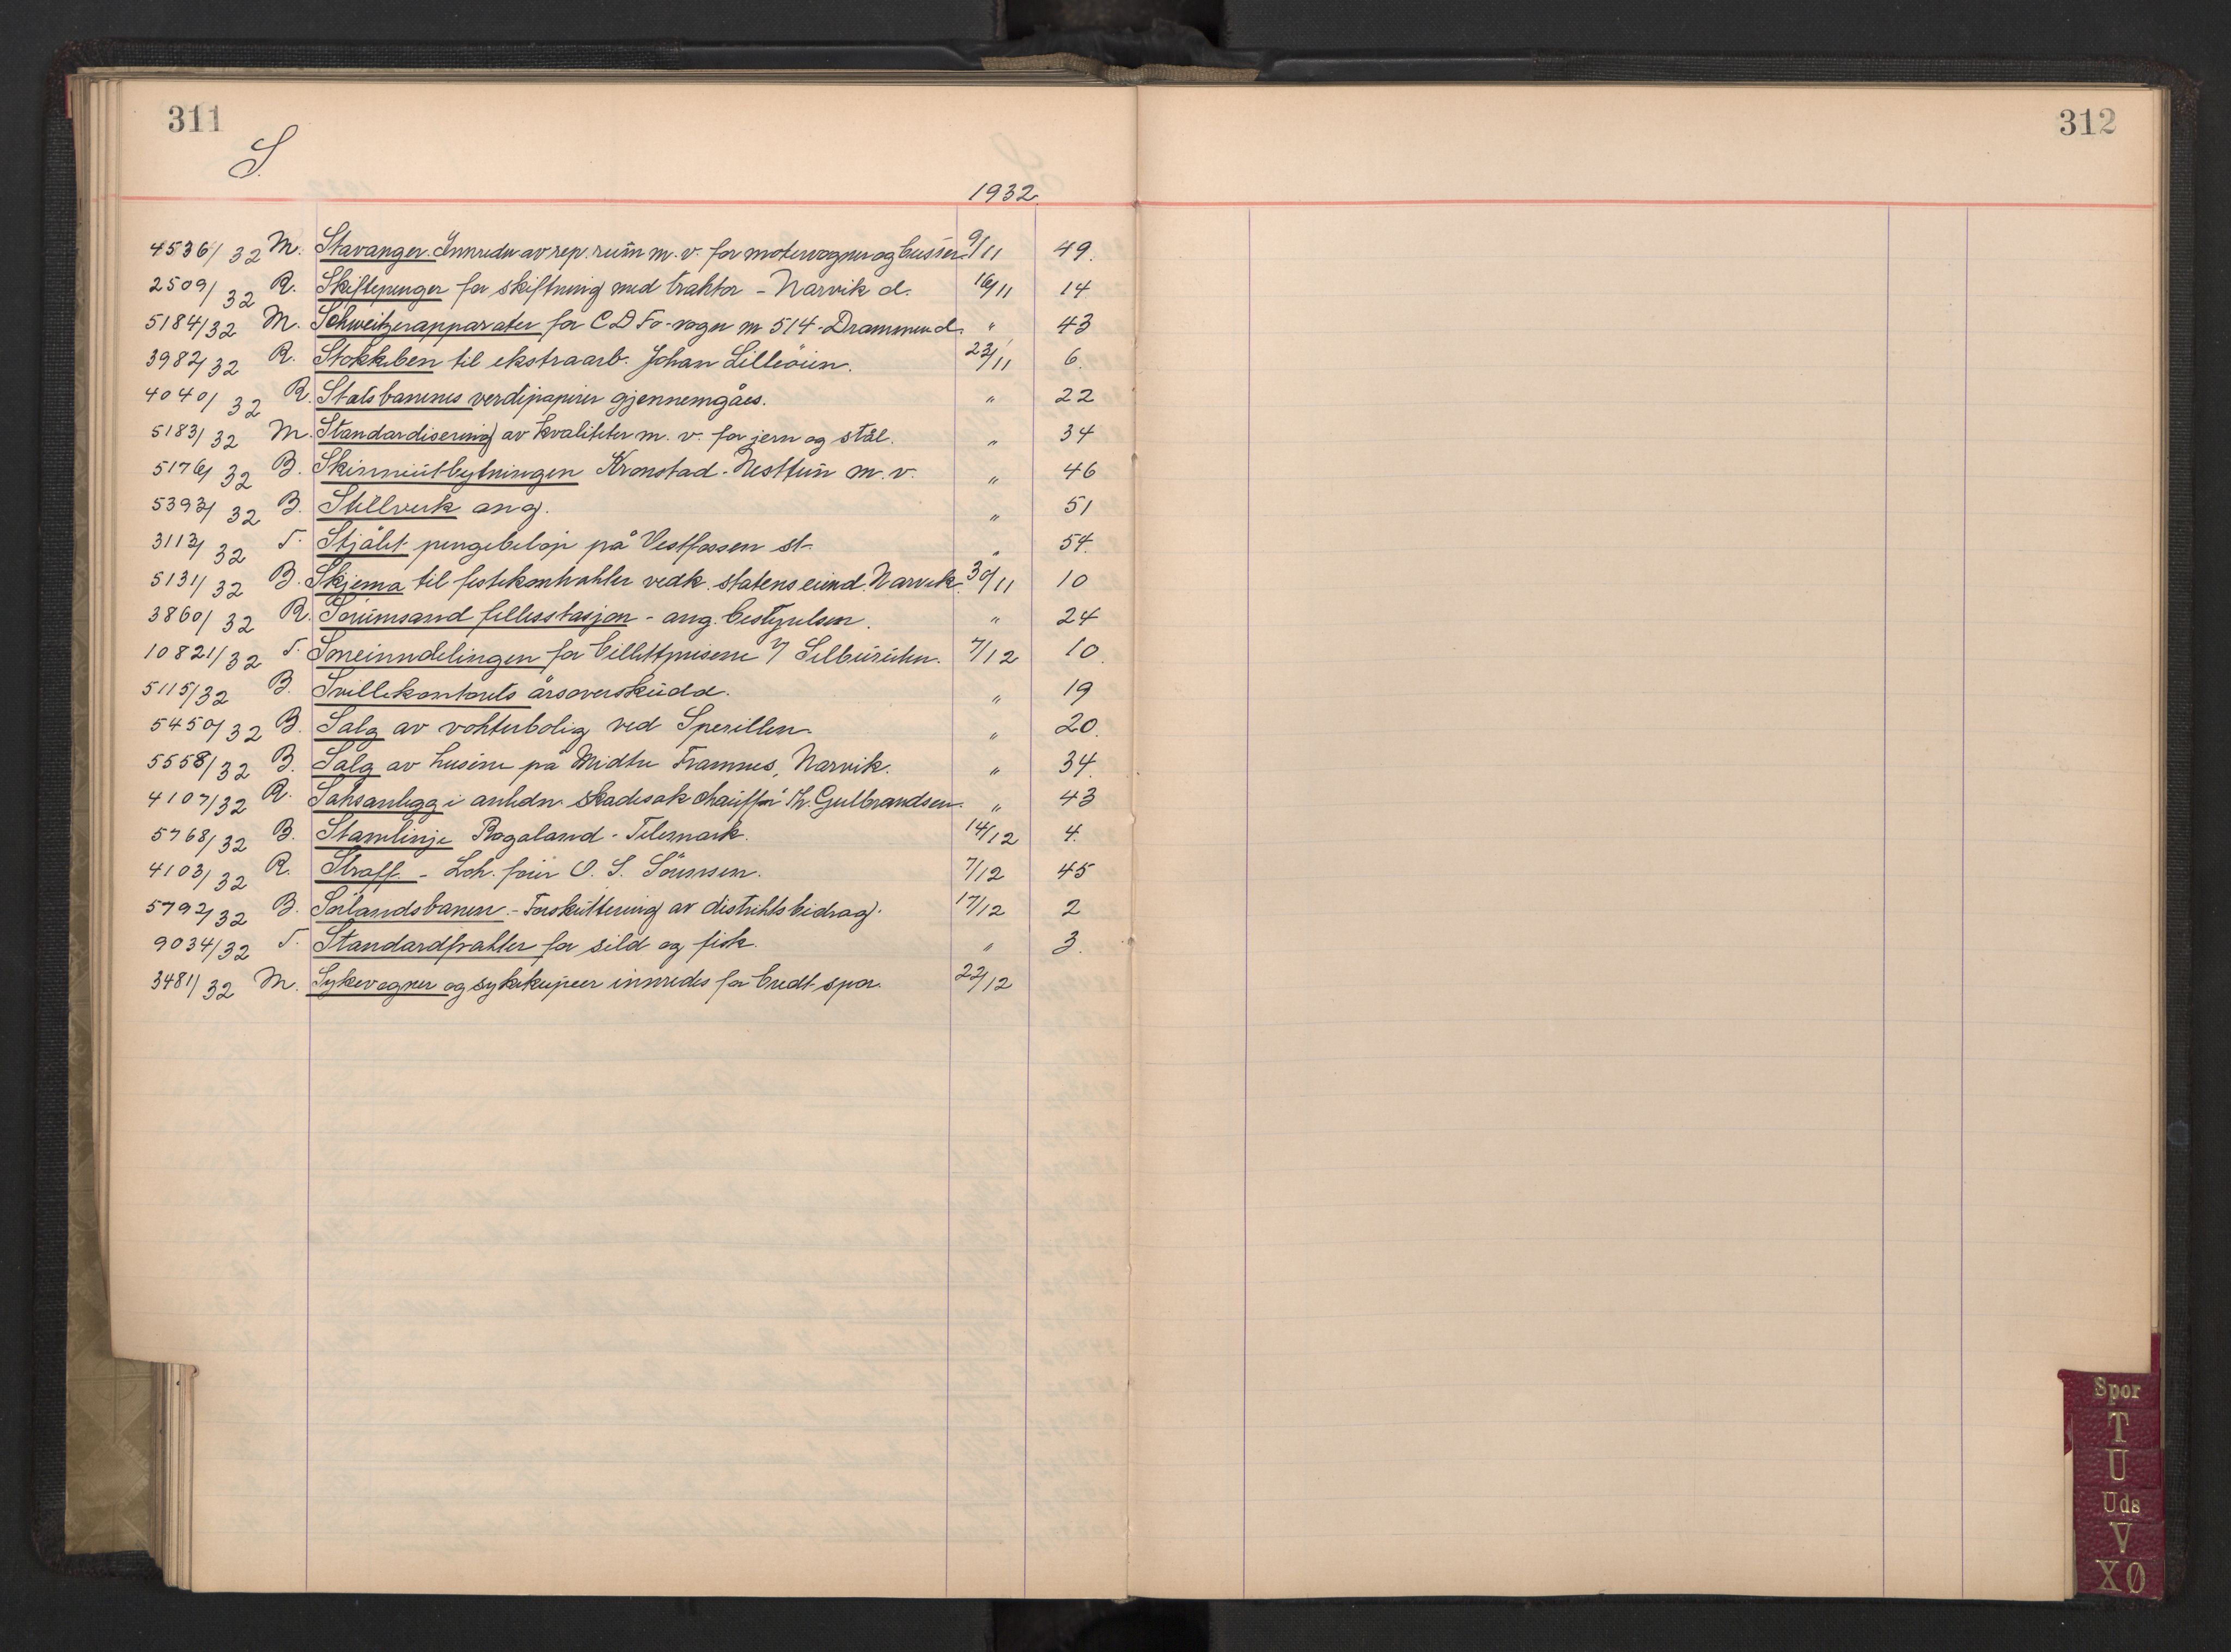 311
312
S.
1932.
4536/32 M. Stavanger. Innredn av rep. rum m. v. for motorvogner og busser. 9/11 49.
2509/32 R. Skiftepenger for skiftning med traktor - Narvik d. 16/11 14
5184/32 M. Schweitzerapparater for C D Fo-vogn nr 514 - Drammen d. " 43
3982/32 R. Stokkben til ekstraarb. Johan Lilleöien. 23/11 6.
4040/32 R. Statsbanenes verdipapirer gjennemgåes. " 22
5183/32 M. Standardisering av kvaliteter m. v. for jern og stål. " 34
5176/32 B. Skinneutbytningen Kronstad - Nesttun m. v. " 46
5393/32 B. Stillverk ang. " 51
3113/32 T. Stjålet pengebeløp på Vestfossen st. " 54.
5131/32 B. Skjema til festekontrakter vedk. statens eiend. Narvik. 30/11 10
3860/32 R. Sørumsand fellesstasjon - ang. bestyrelsen. " 24
10821/32 T. Soneinndelingen for billettprisene i Selburuten. 7/12 10.
5115/32 B. Svillekontorets årsoverskudd. " 19
5450/32 B. Salg av vokterbolig ved Sperillen. " 20.
5558/32 B. Salg av husene på Midtre Framnes, Narvik. " 34.
4107/32 R. Saksanlegg i anledn. skadesak chauffør Th. Gulbrandsen. " 43
5768/32 B. Stamlinje Rogaland - Telemark. 14/12 4.
4103/32 R. Straff. - Lok. fører O. S. Sörensen. 7/12 45
5792/32 B. Sørlandsbanen. - Forskuttering av distriktsbidrag. 17/12 2
9034/32 T. Standardfrakter for sild og fisk. " 3.
3481/32 M. Sykevogner og sykekupeer innredes for bredt spor. 22/12
Spor
T
U
Uds
V
XØ